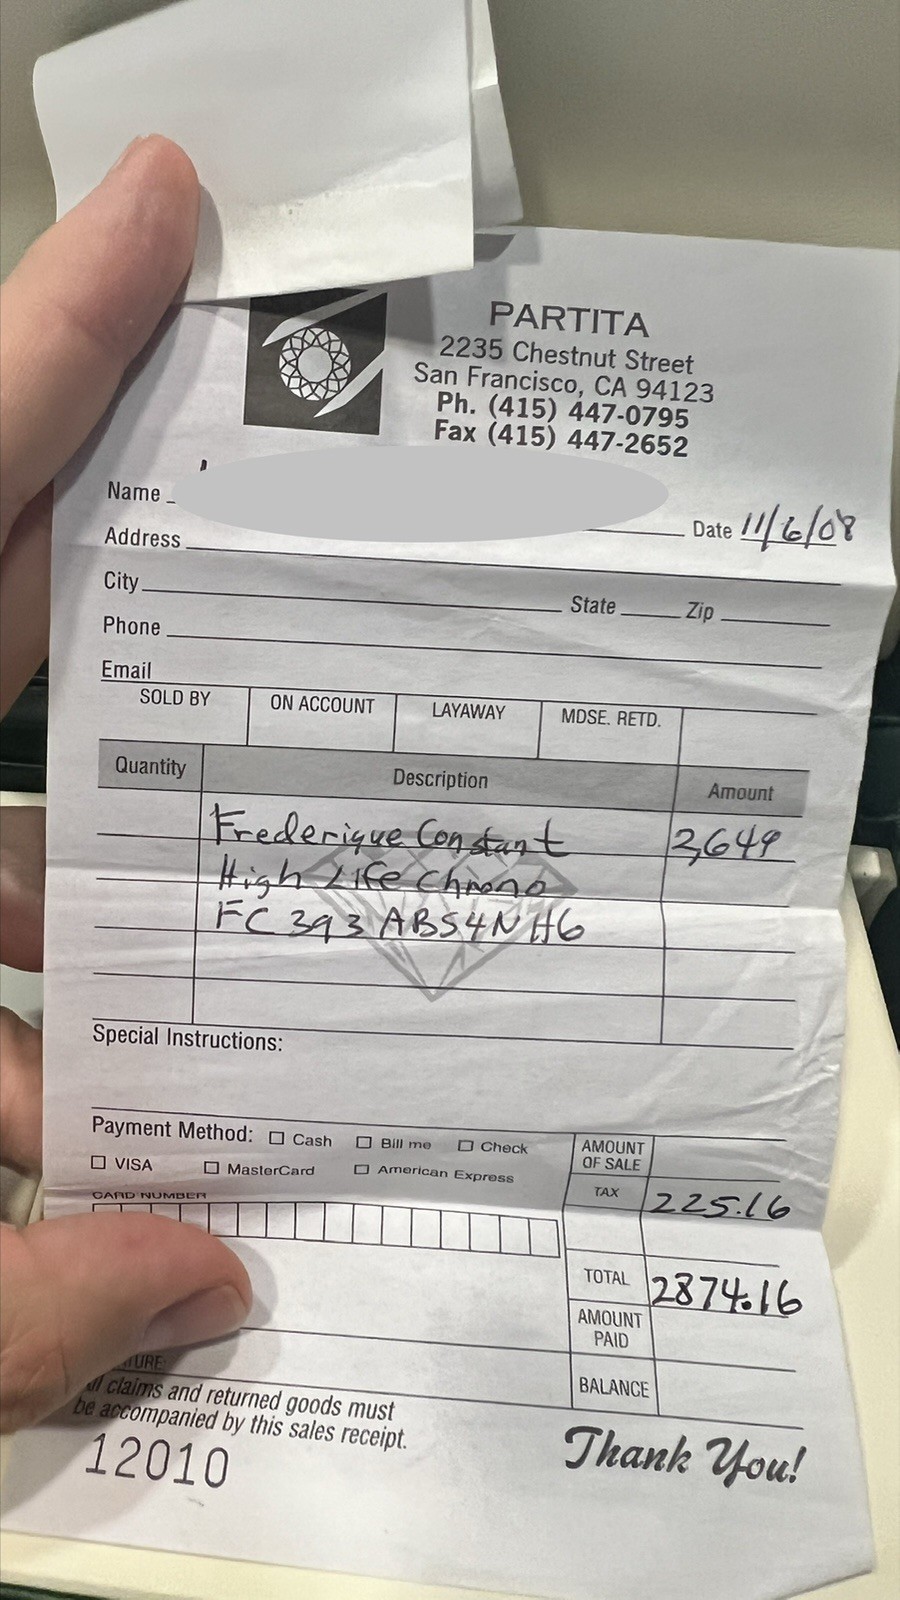 PARTITA
2235 Chestnut Street
San Francisco, CA 94123
Ph. (415) 447-0795
Fax (415) 447-2652
Name
Date 11/6/08
Address
City State Zip
Phone
Email
SOLD BY ON ACCOUNT LAYAWAY MDSE. RETD.
Quantity Description Amount
Frederique Constant 2,649
High Life Chrono
FC 393 ABS4NH6
Special Instructions:
Payment Method: Cash Bill me Check
VISA MasterCard American Express
CARD NUMBER
AMOUNT
OF SALE
TAX 225.16
TOTAL 2874.16
AMOUNT
PAID
BALANCE
claims and returned goods must
be accompanied by this sales receipt.
12010
Thank You!